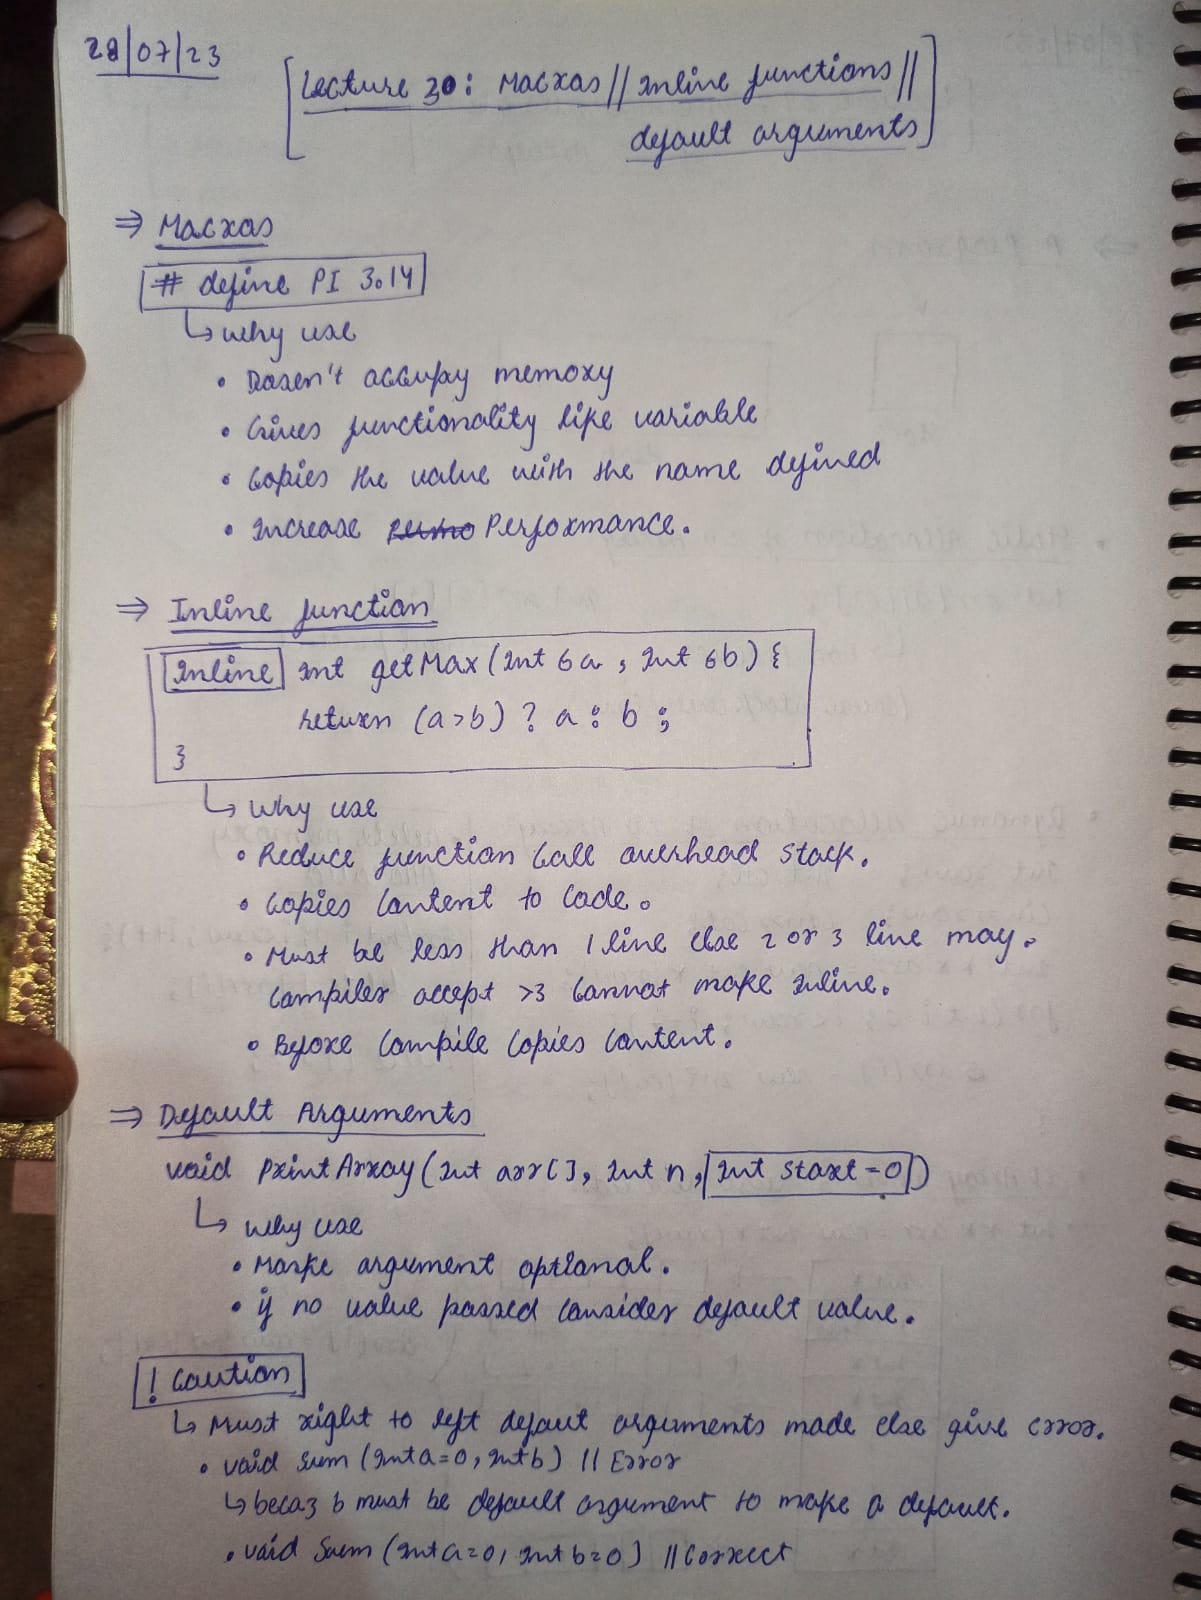 28/07/23
[Lecture 30: Macros // Inline functions //
default arguments]
⇒ Macros
# define PI 3.14
↳ why use
• Doesn't occupy memory
• Gives functionality like variable
• Copies the value with the name defined
• Increase Performance.
⇒ Inline function
Inline int getMax (int &a, int &b) {
return (a>b) ? a : b ;
}
↳ why use
• Reduce function call overhead stack.
• Copies content to code.
• Must be less than 1 line else 2 or 3 line may.
compiler accept >3 cannot make inline.
• Before compile copies content.
⇒ Default Arguments
void PrintArray (int arr[], int n, int start = 0)
↳ why use
• Make argument optional.
• if no value passed consider default value.
! Caution
↳ Must right to left defaut arguments made else give error.
• void Sum (int a=0, int b) // Error
↳ becaz b must be default argument to make a default.
• void Sum (int a=0, int b=0) // Correct